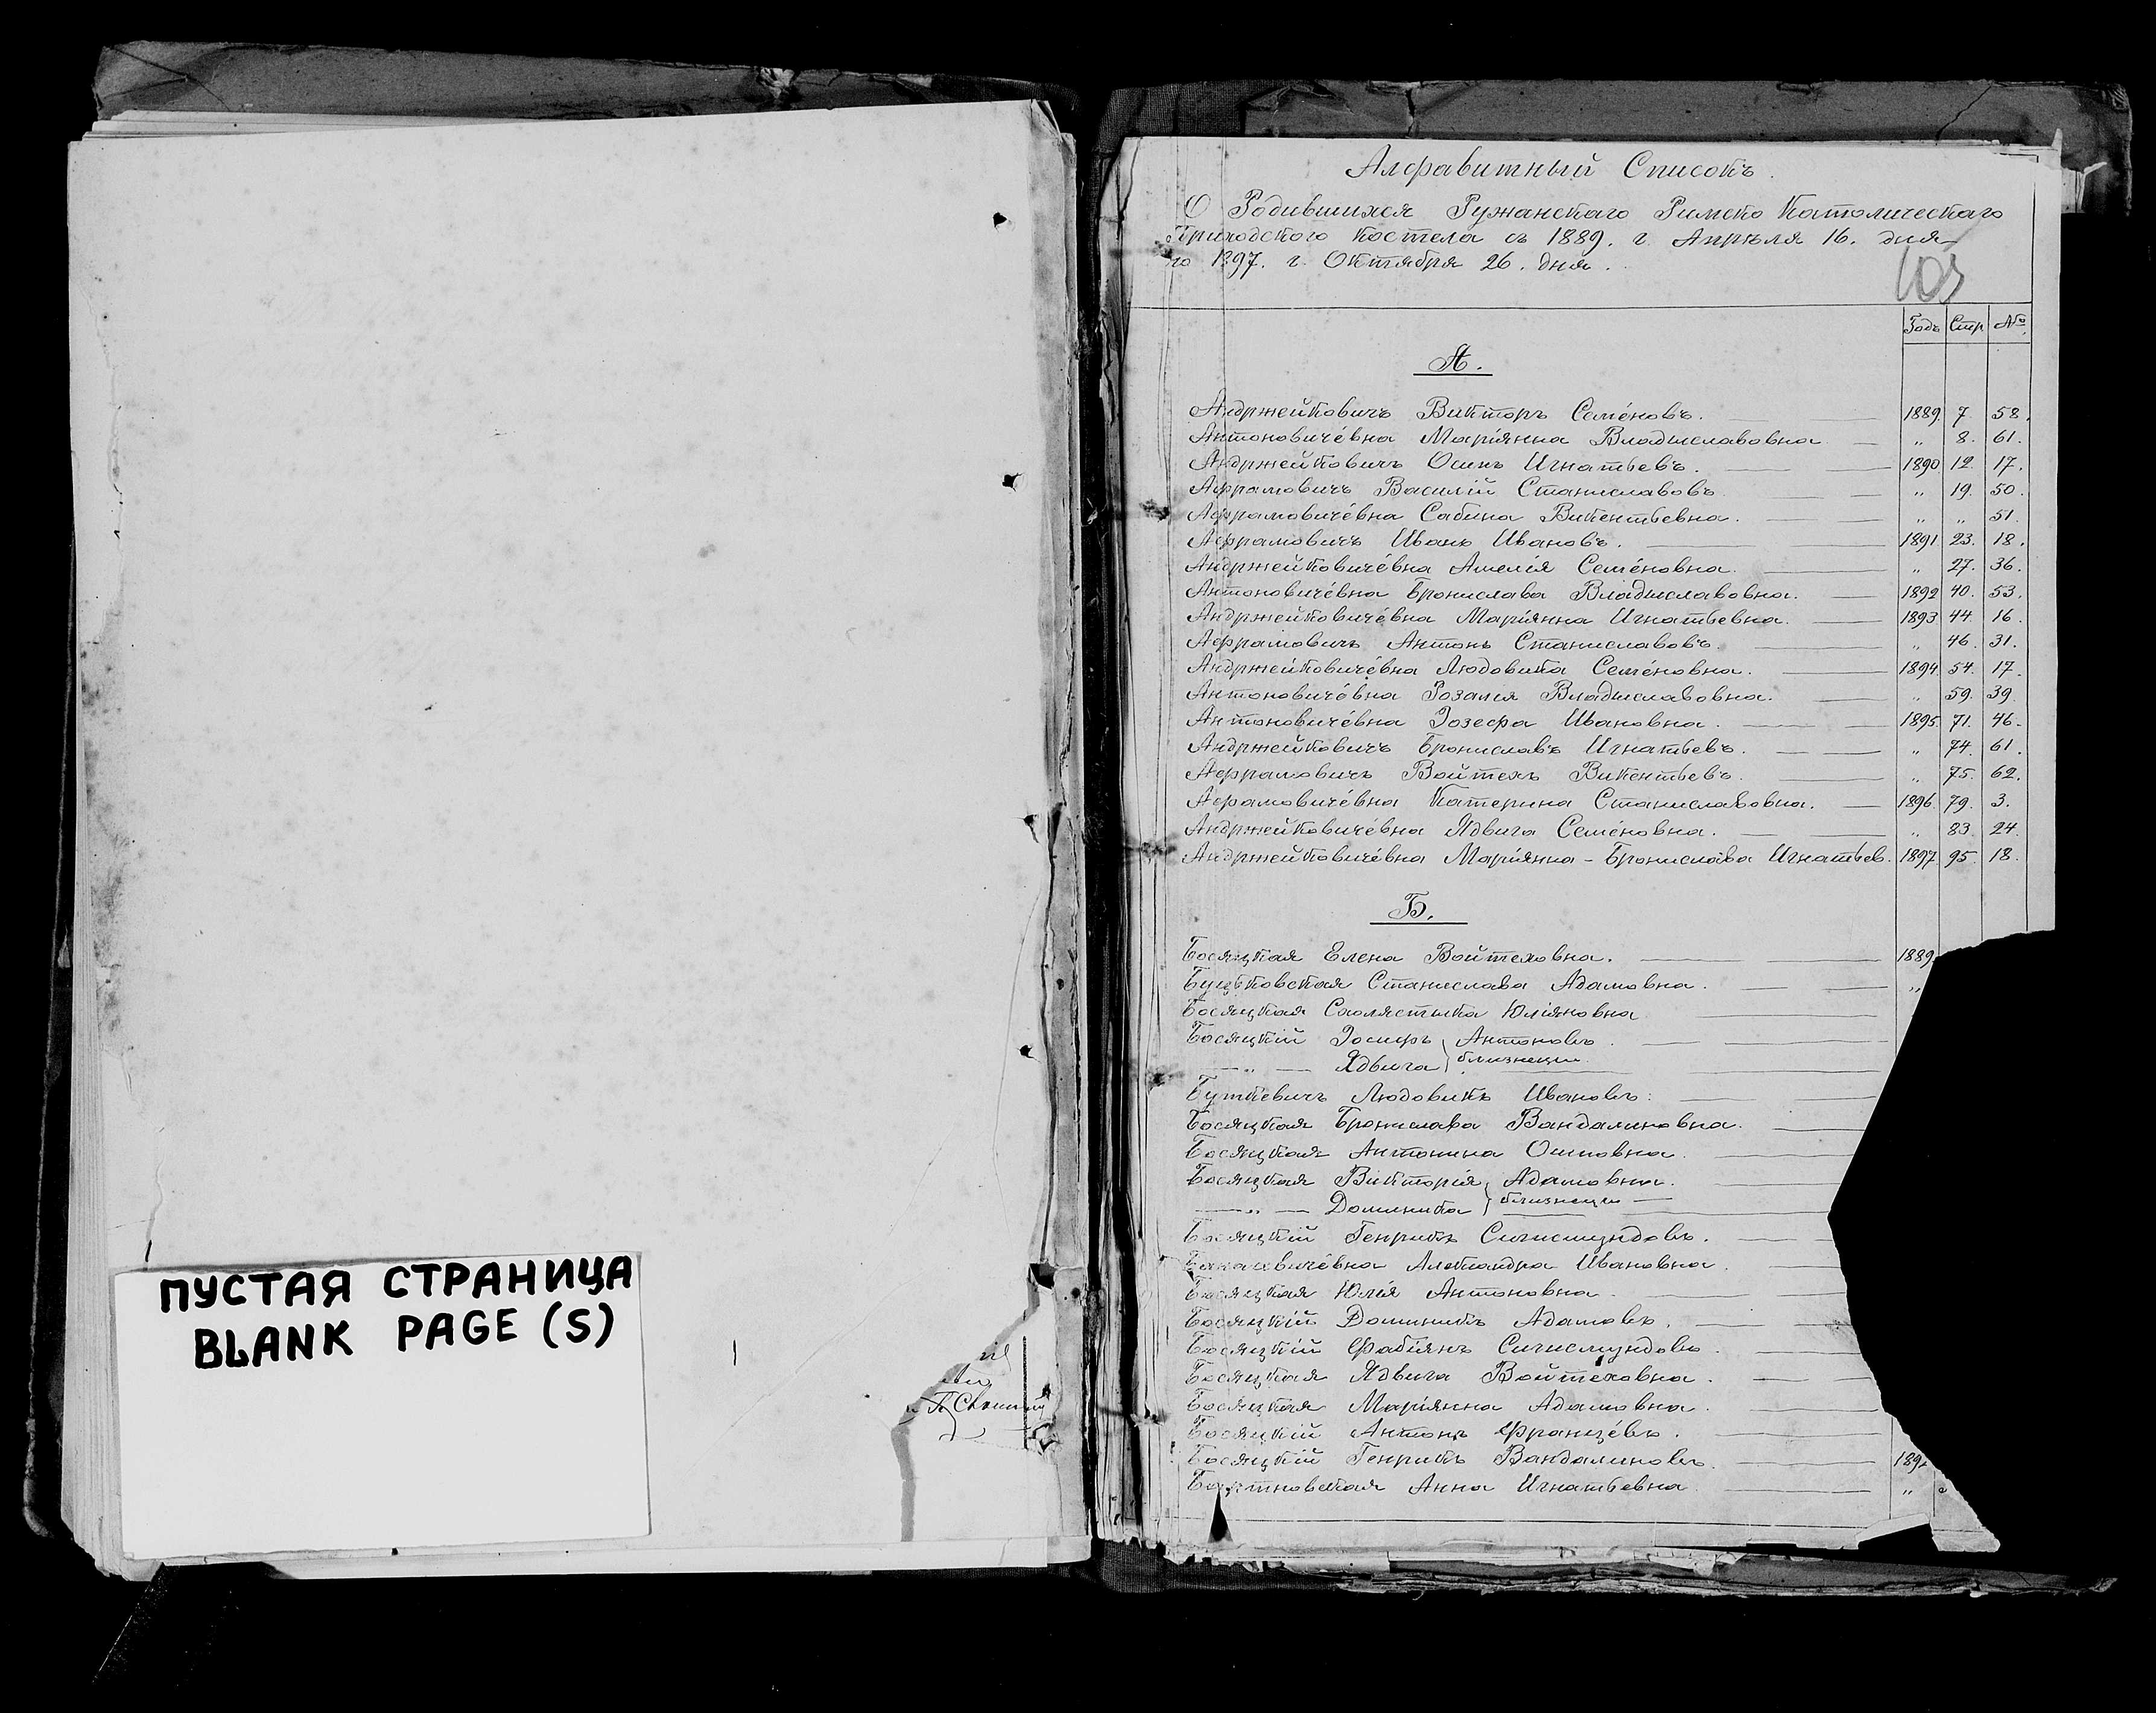 ПУСТАЯ СТРАНИЦА
BLANK PAGE (S)
Алфавитный Списокъ.
О Родившихся Ружанскаго Римско Католическаго
Приходского Костела съ 1889. г. Апрѣля 16. дня
по 1897. г. Октября 26. дня.
103
Годъ Стр №
А.
Андржейковичъ Викторъ Семёновъ. 1889. 7. 58.
Антоновичéвна Марiянна Владиславовна „ 8. 61.
Андржейковичъ Осипъ Игнатьевъ. 1890 12. 17.
Аврамовичъ Василiй Станиславовъ „ 19. 50.
Аврамовичéвна Сабина Викентьевна. „ „ 51.
Аврамовичъ Иванъ Ивановъ. 1891 23. 18.
Андржейковичéвна Амелiя Семёновна. „ 27. 36.
Антоновичéвна Бронислава Владиславовна. 1892 40. 53.
Андржейковичéвна Марiянна Игнатьевна. 1893 44. 16.
Аврамовичъ Антонъ Станиславовъ. „ 46. 31.
Андржейковичéвна Людовика Семёновна. 1894. 54. 17.
Антоновичéвна Розалiя Владиславовна. „ 59. 39.
Антоновичéвна Iозефа Ивановна. 1895. 71. 46.
Андржейковичъ Брониславъ Игнатьевъ. „ 74. 61.
Аврамовичъ Войтехъ Викентьевъ. „ 75. 62.
Аврамовичéвна Катерина Станиславовна. 1896. 79. 3.
Андржейковичéвна Ядвига Семёновна. „ 83. 24.
Андржейковичéвна Марiянна - Бронислава Игнатьев. 1897. 95. 18.
Б.
Босяцкая Елена Войтеховна. 1889
Станислава Адамовна. „
Босяцкая Юлiяновна
Босяцкiй Iосифъ } Антоновъ.
— „ — Ядвига } близнецы.
Буткевичъ Людовикъ Ивановъ.
Босяцкая Бронислава Вандалиновна.
Босяцкая Антонина Осиповна.
Босяцкая Викторiя } Адамовны.
— „ — Доминика } близнецы —
Босяцкiй Генрикъ Сигисмундовъ.
Александра Ивановна.
Босяцкая Юлiя Антоновна.
Босяцкiй Доминикъ Адамовъ.
Босяцкiй Фабiянъ Сигисмундовъ.
Босяцкая Ядвига Войтеховна.
Босяцкая Марiянна Адамовна.
Босяцкiй Антонъ Францéвъ.
Босяцкiй Генрикъ Вандалиновъ. 189
Бортновская Анна Игнатьевна „